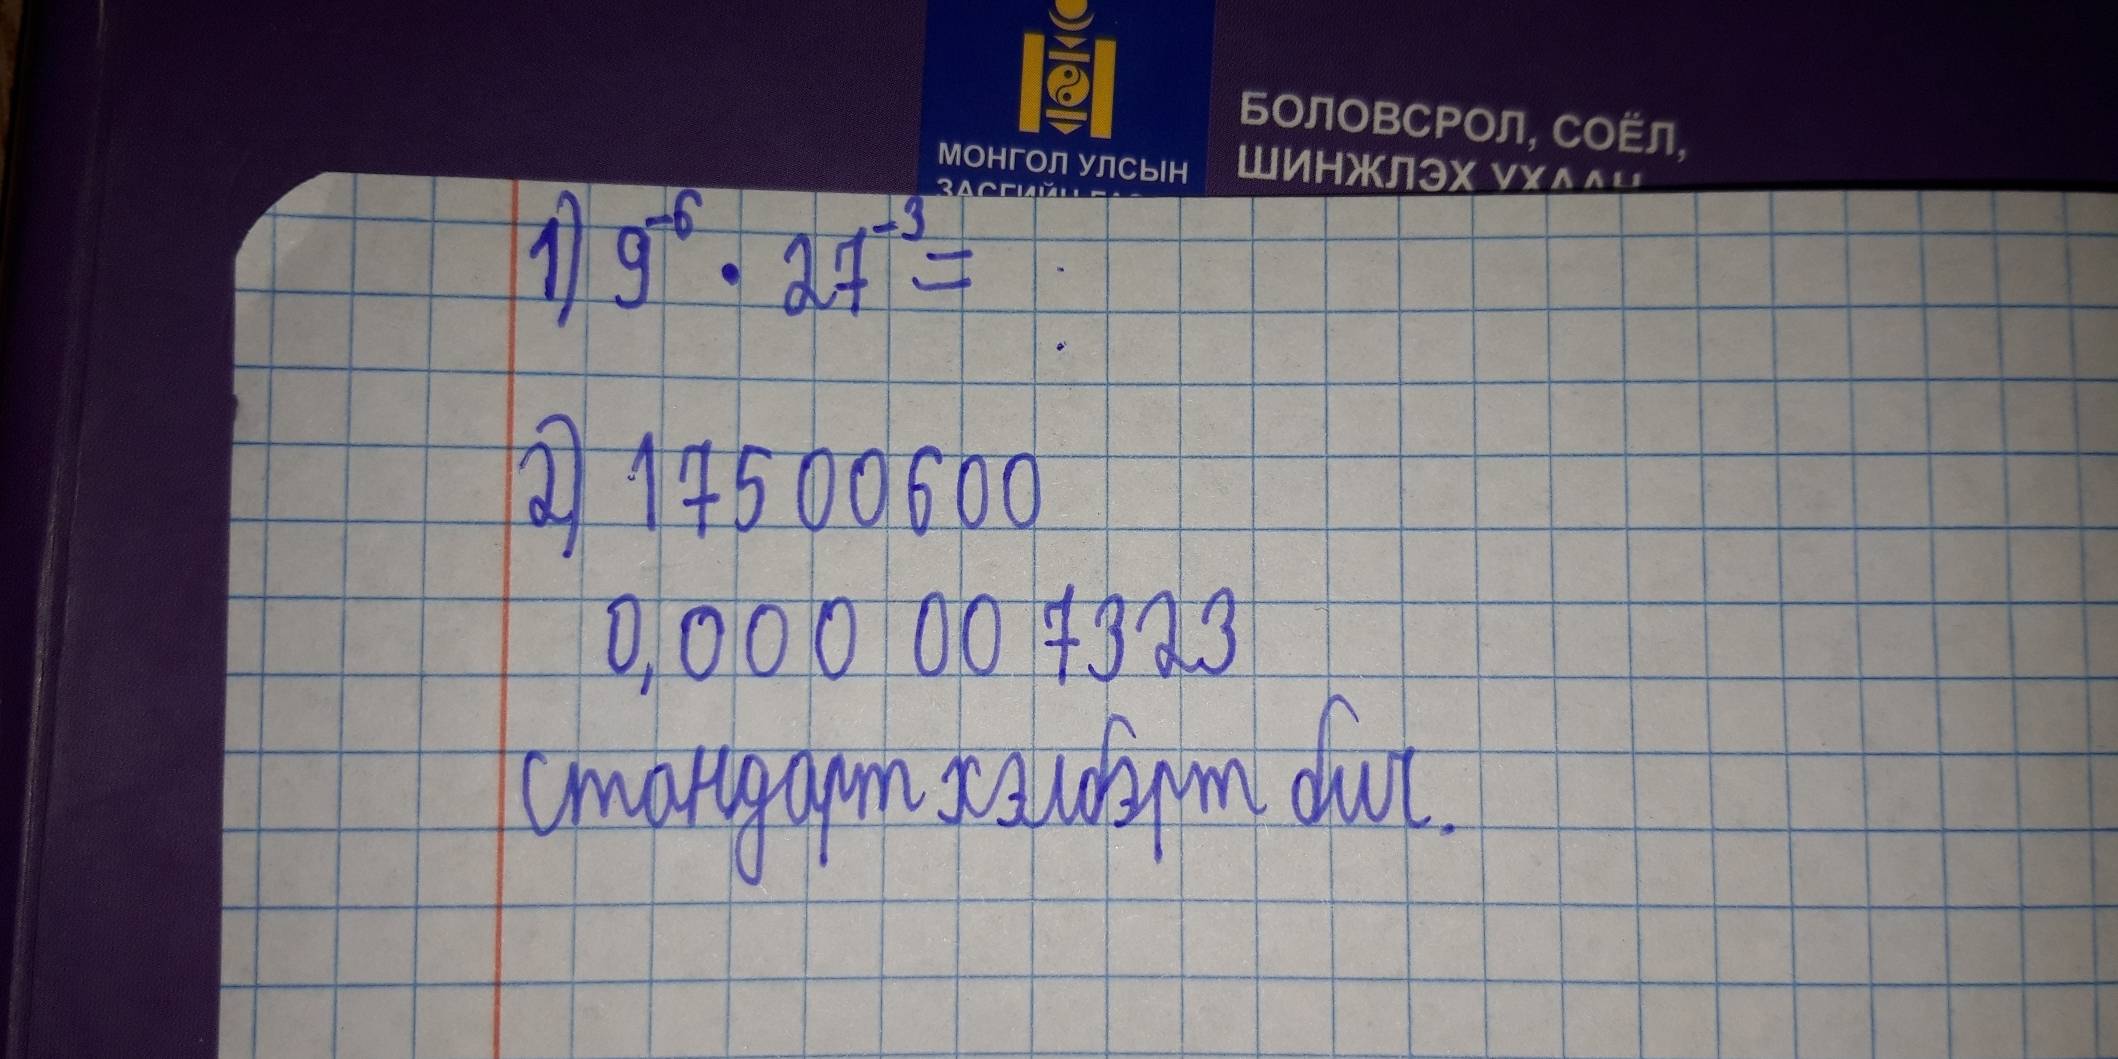 МОНГОЛ УЛСЫН
БОЛОВСРОЛ, СОЁЛ,
ШИНЖЛЭХ УХААН
1) 9⁻⁶ · 27⁻³ =
2) 17500600
0,000 00 7323
стандарт хэлбэрт бич.